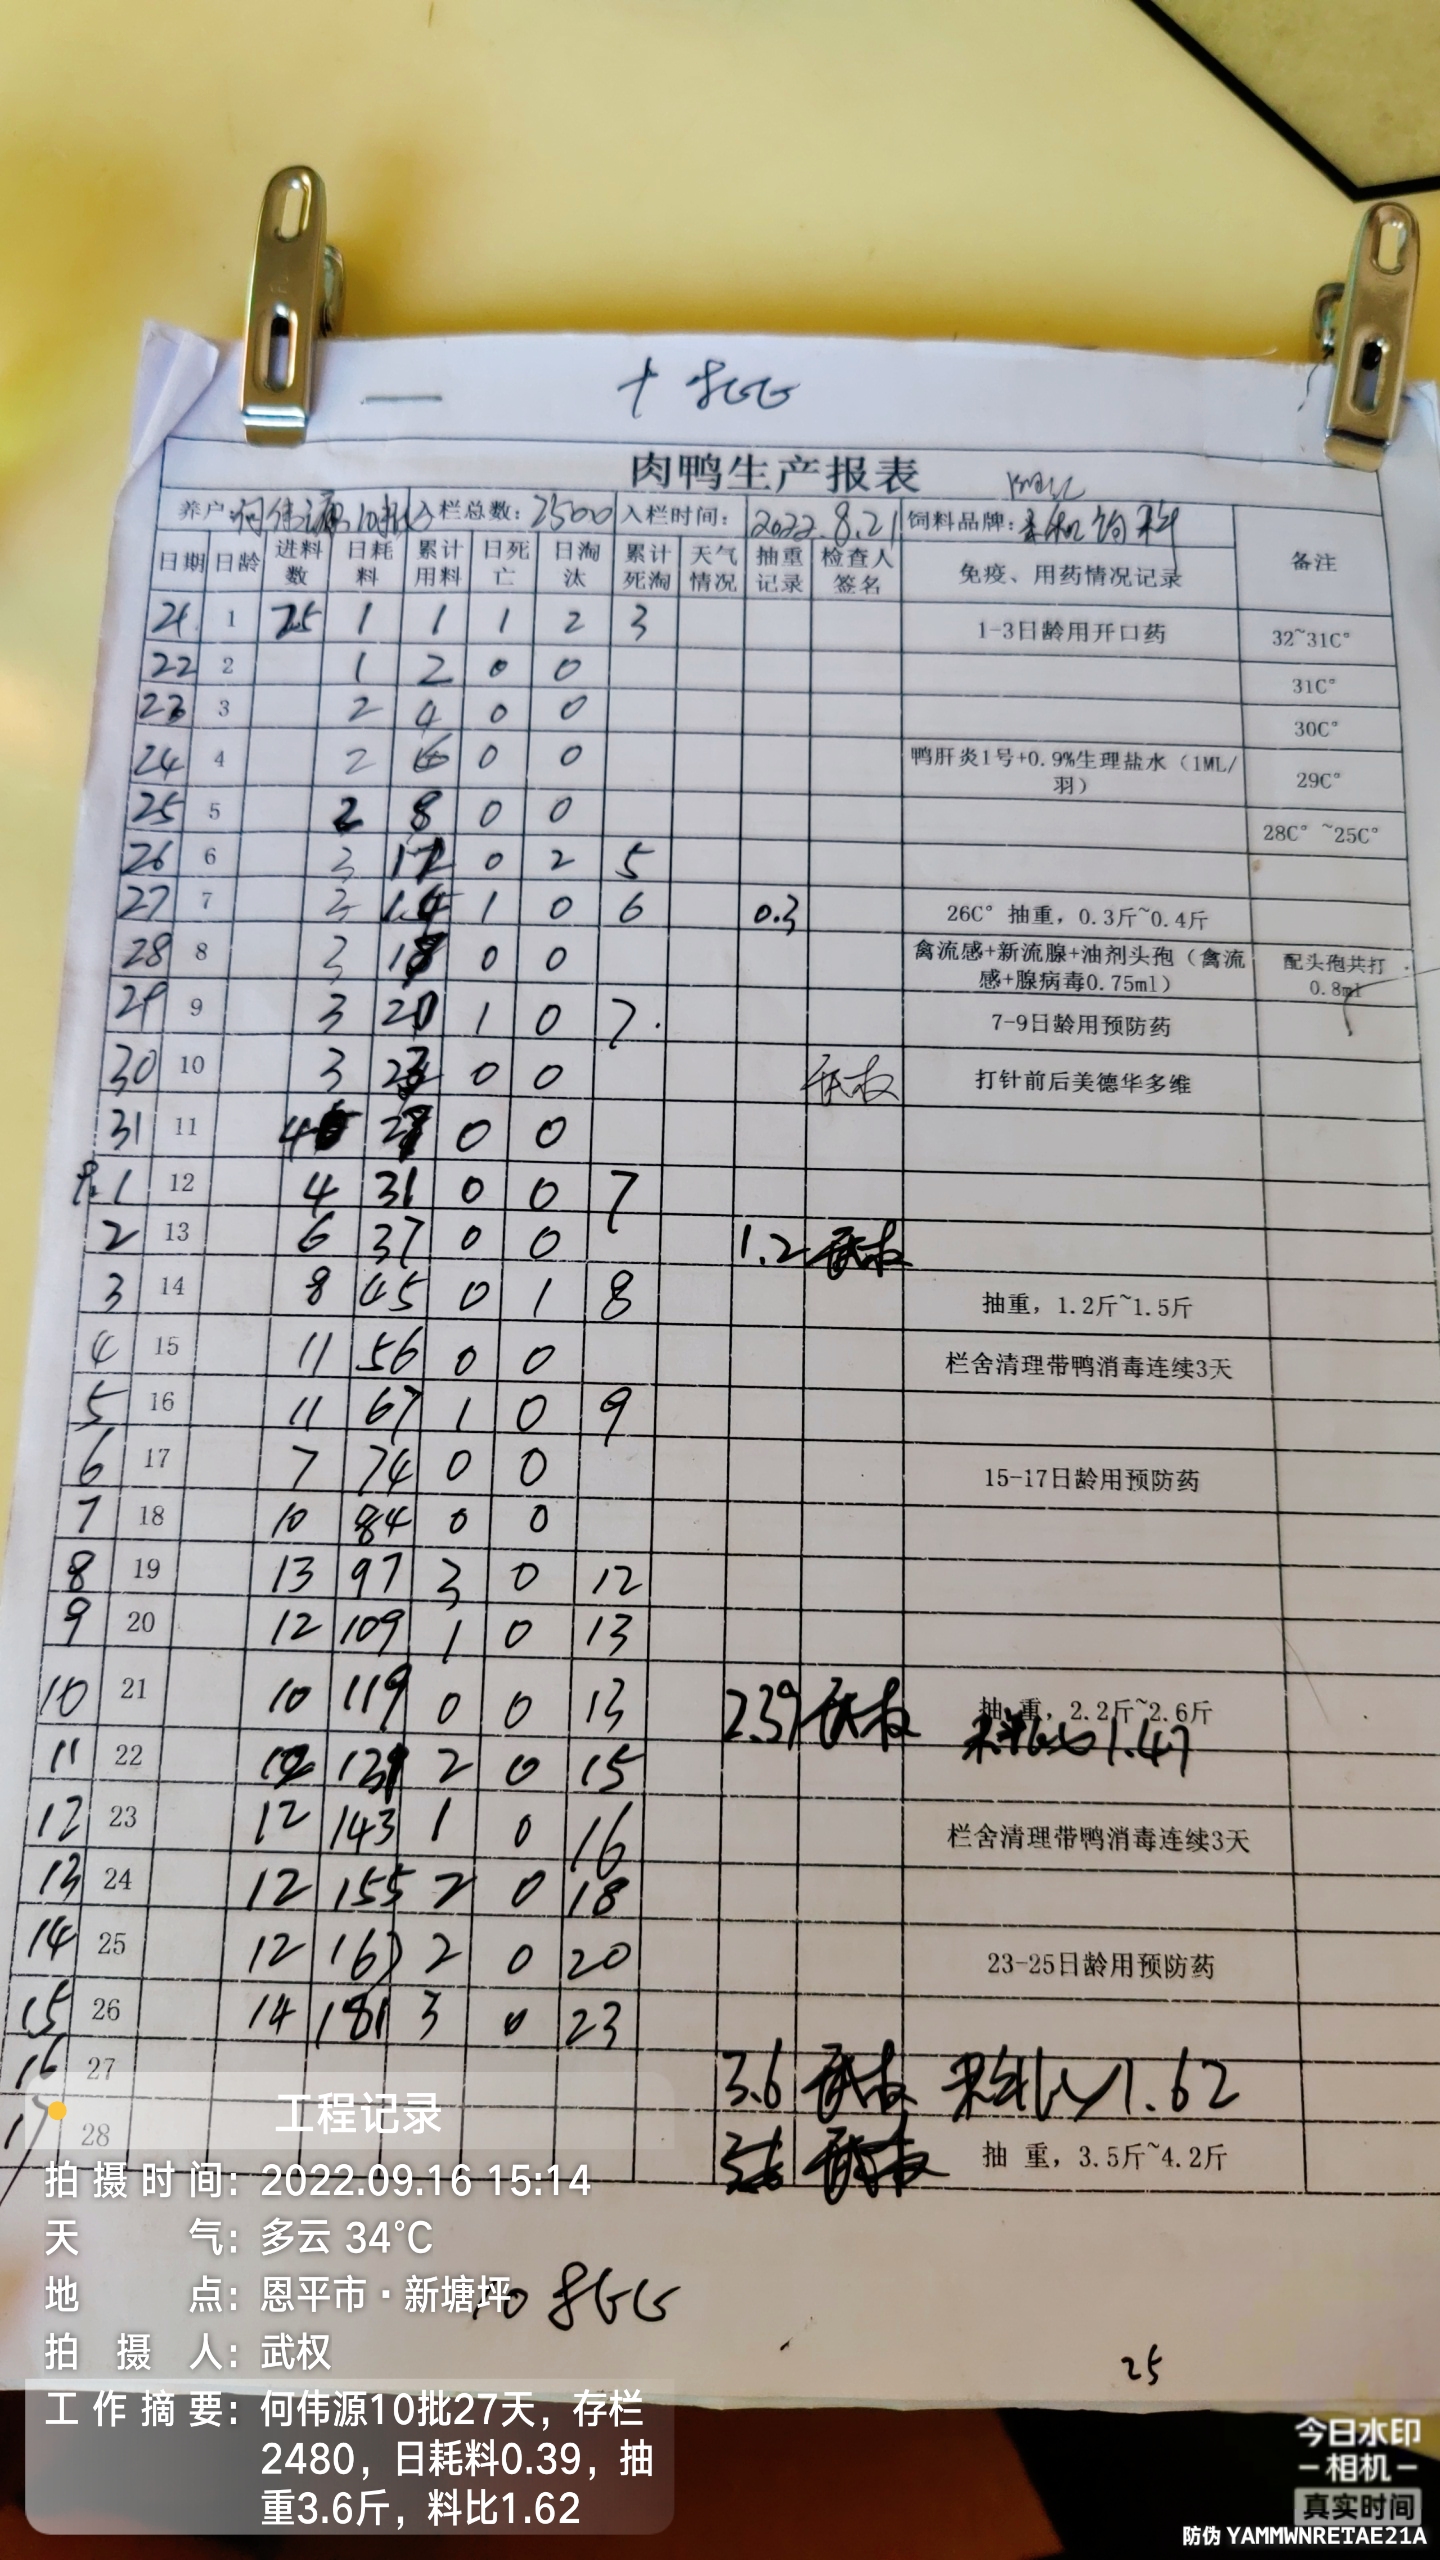 肉鸭生产报表
养户:何伟源10批 入栏总数:2500 入栏时间: 2022.8.21 饲料品牌: 饲料
日期 日龄 进料数 日耗料 累计用料 日死亡 日淘汰 累计死淘 天气情况 抽重记录 检查人签名 免疫、用药情况记录 备注
21 1 25 1 1 1 2 3 1-3日龄用开口药 32~31C°
22 2 1 2 0 0 31C°
23 3 2 4 0 0 30C°
24 4 2 6 0 0 鸭肝炎1号+0.9%生理盐水(1ML/羽) 29C°
25 5 2 8 0 0 28C° ~25C°
26 6 3 0 2 5
27 7 1 0 6 0.3 26C° 抽重,0.3斤~0.4斤
28 8 3 0 0 禽流感+新流腺+油剂头孢(禽流感+腺病毒0.75ml) 配头孢共打0.8ml
29 9 3 20 1 0 7. 7-9日龄用预防药
30 10 3 23 0 0 武权 打针前后美德华多维
31 11 4 27 0 0
9.1 12 4 31 0 0 7
2 13 6 37 0 0 1.2 武权
3 14 8 45 0 1 8 抽重,1.2斤~1.5斤
4 15 11 56 0 0 栏舍清理带鸭消毒连续3天
5 16 11 67 1 0 9
6 17 7 74 0 0 15-17日龄用预防药
7 18 10 84 0 0
8 19 13 97 3 0 12
9 20 12 109 1 0 13
10 21 10 119 0 0 13 2.39 武权 抽 重,2.2斤~2.6斤
料比1.47
11 22 12 131 2 0 15
12 23 12 143 1 0 16 栏舍清理带鸭消毒连续3天
13 24 12 155 2 0 18
14 25 12 167 2 0 20 23-25日龄用预防药
15 26 14 181 3 0 23
16 27 3.6 武权 料比1.62
17 28 武权 抽 重,3.5斤~4.2斤
工程记录
拍摄时间:2022.09.16 15:14
天气:多云 34℃
地点:恩平市·新塘坪
拍摄人:武权
工作摘要:何伟源10批27天,存栏
2480,日耗料0.39,抽
重3.6斤,料比1.62
25
今日水印
相机
真实时间
防伪 YAMMWNRETAE21A